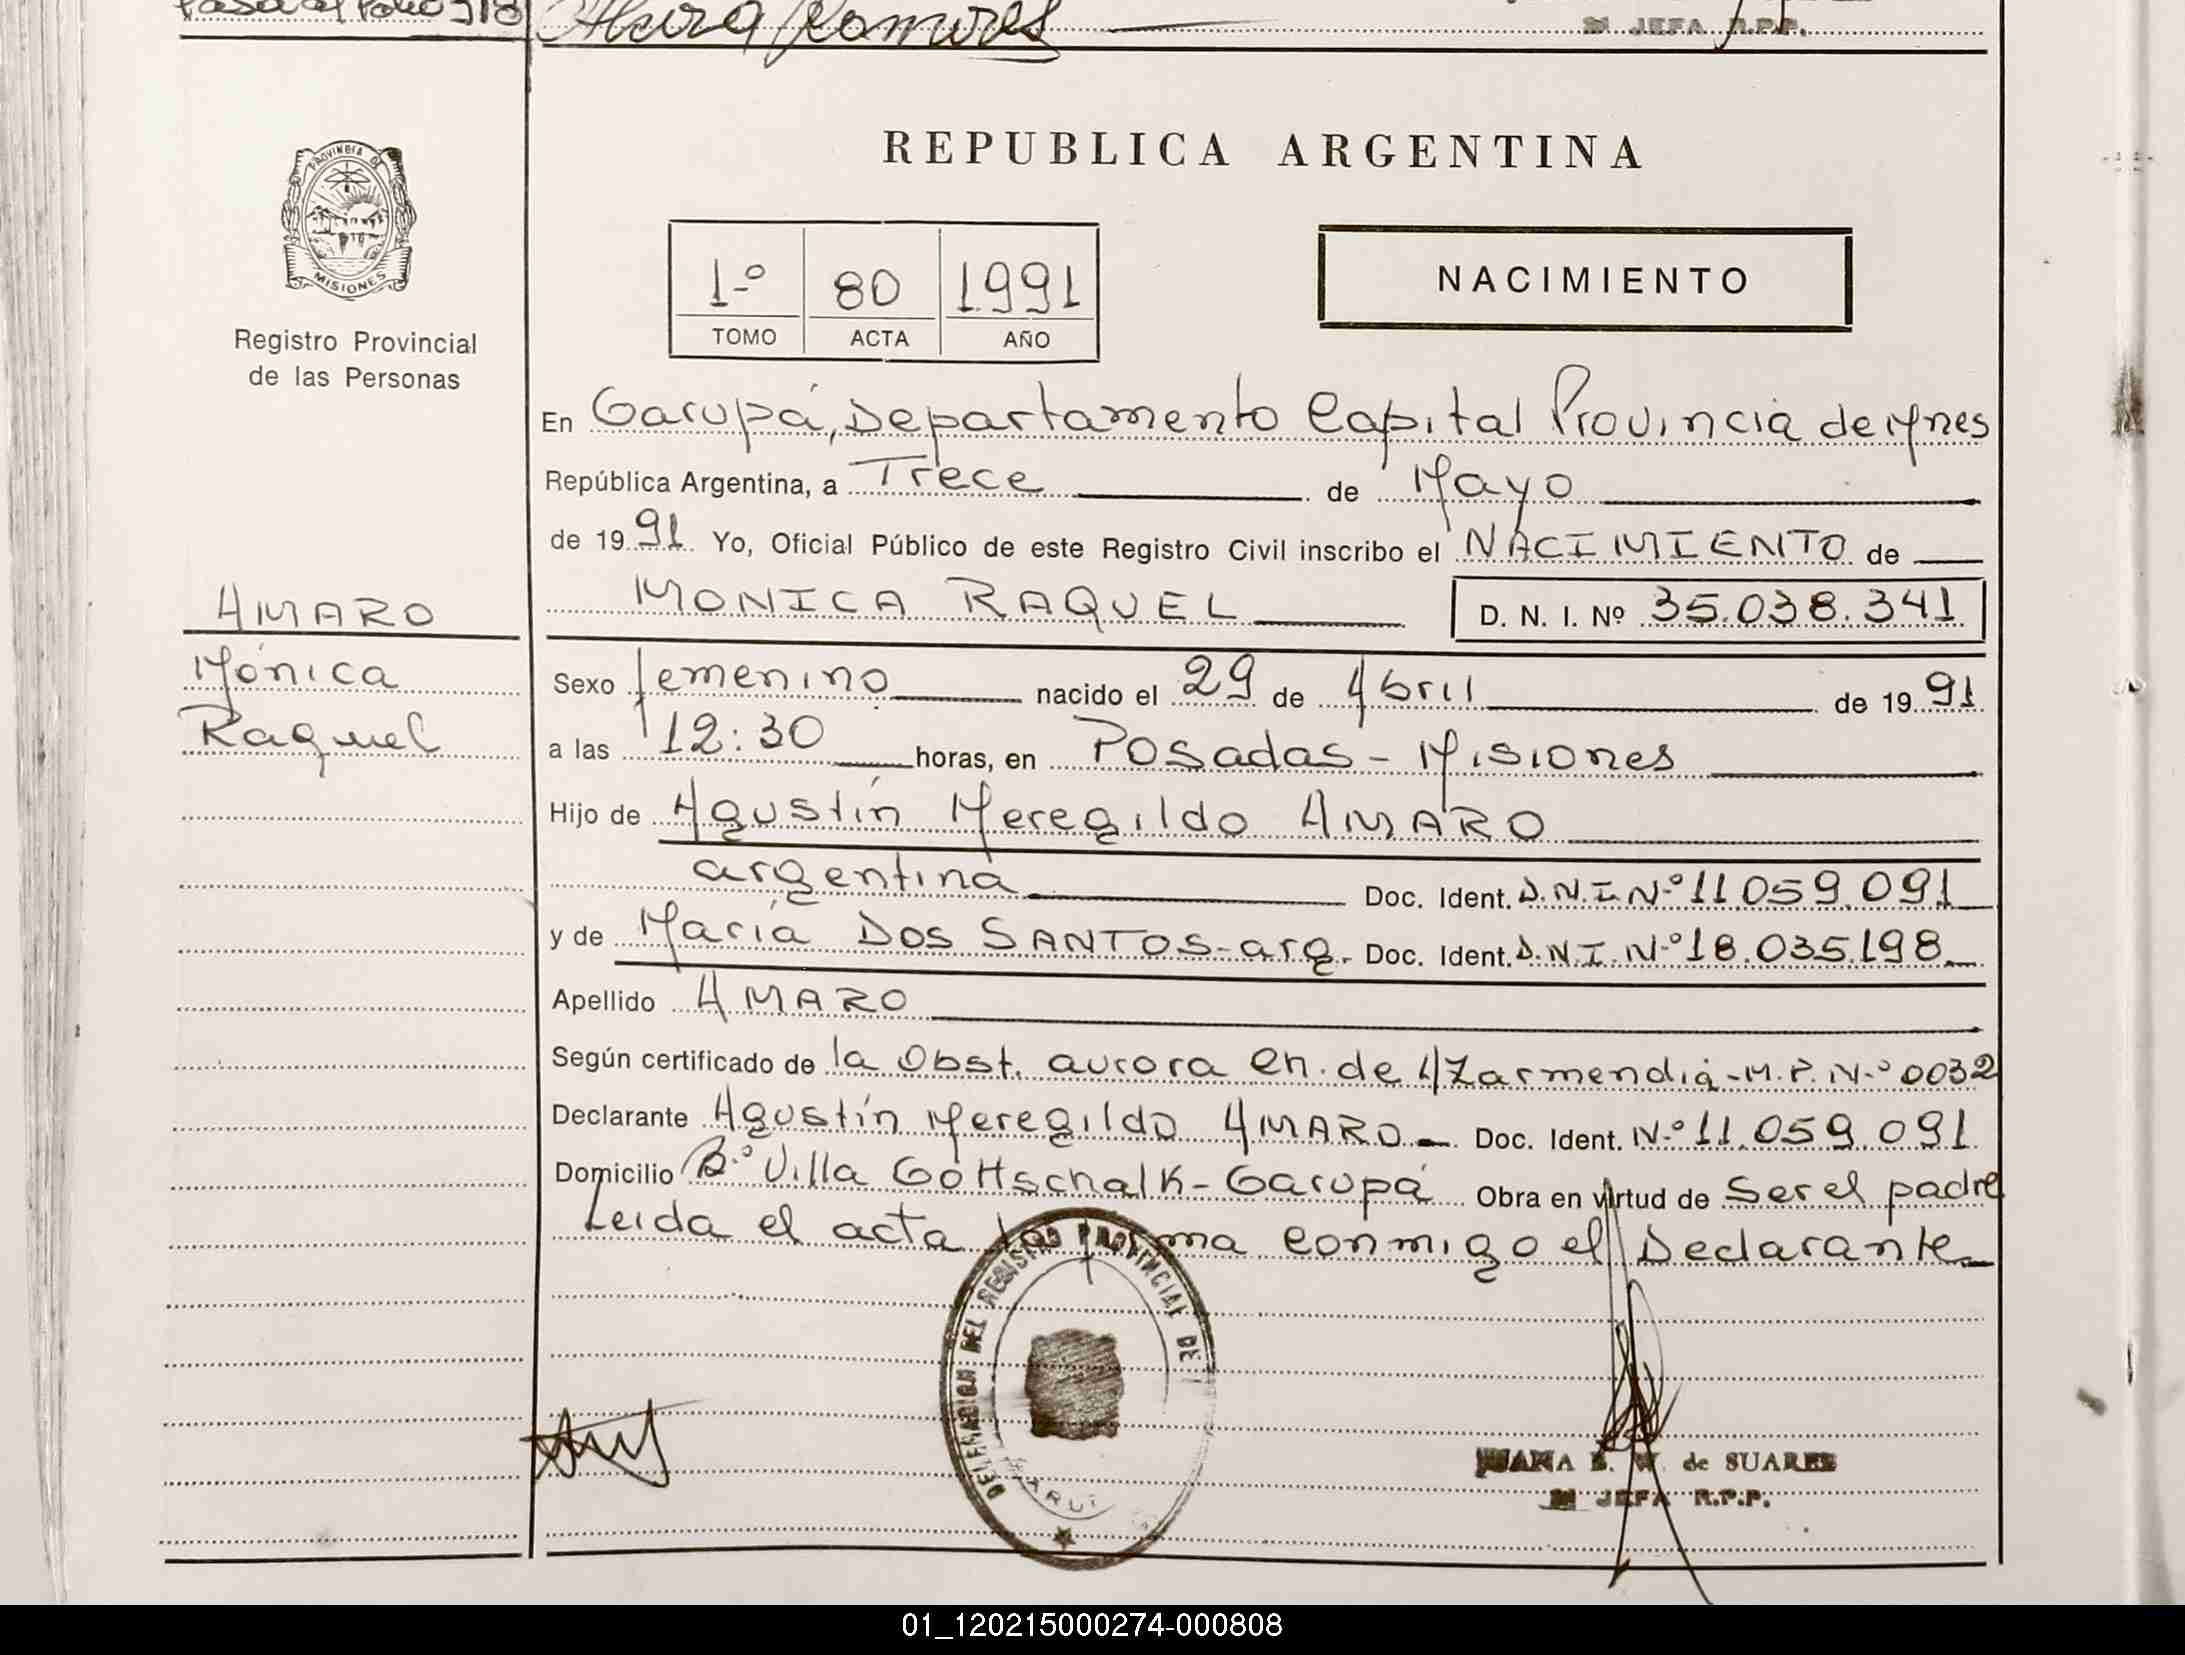 Pasa al Folio 318
Ramires
JEFA R.P.P.
PROVINCIA D
MISIONES
Registro Provincial
de las Personas
REPUBLICA ARGENTINA
1º 80 1991
TOMO ACTA AÑO
NACIMIENTO
En Garupá, Departamento Capital Provincia de Mnes
República Argentina, a Trece de Mayo
de 1991 Yo, Oficial Público de este Registro Civil inscribo el NACIMIENTO de
MONICA RAQUEL D. N. I. Nº 35.038.341
AMARO
Mónica
Raquel
Sexo femenino nacido el 29 de Abril de 1991
a las 12:30 horas, en Posadas - Misiones
Hijo de Agustín Meregildo AMARO
argentina Doc. Ident. D.N.I. Nº 11.059.091
y de María DOS SANTOS - arg. Doc. Ident. D.N.I. Nº 18.035.198
Apellido AMARO
Según certificado de la Obst. aurora en. de Azarmendia - M.P. Nº 0032
Declarante Agustín Meregildo AMARO Doc. Ident. Nº 11.059.091
Domicilio Bº Villa Gottschalk - Garupá Obra en virtud de Ser el padre
Leida el acta la firma conmigo el Declarante
DELEGACION DEL REGISTRO PROVINCIAL DE
JUANA E. W. de SUARES
JEFA R.P.P.
01_120215000274-000808